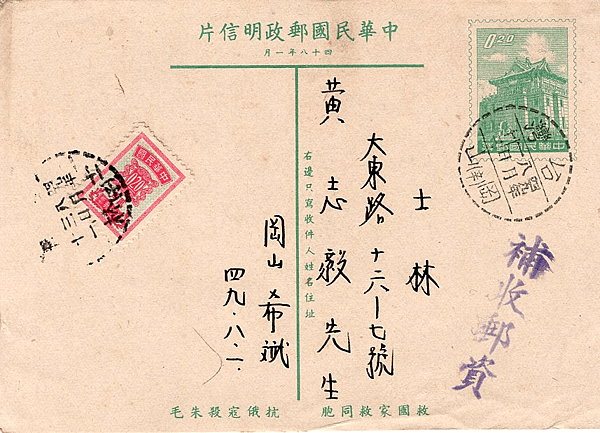 中華民國郵政明信片
四十八年一月
0.20
中華民國郵政
台灣
岡山
補收郵資
士林
大東路十六-七號
黃志毅先生
右邊只寫收件人姓名住址
岡山 希斌
四九.八.一.
救國家救同胞
抗俄寇殺朱毛